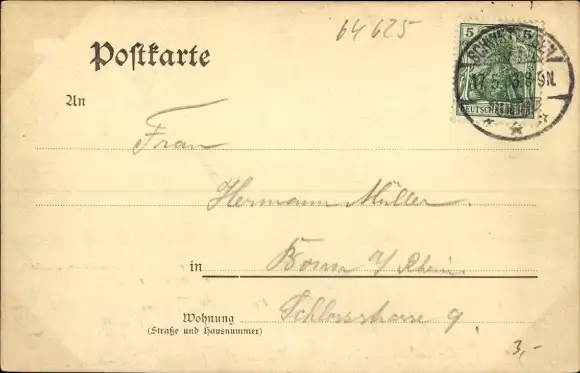 64625
Postkarte
5 5
SCHWETZINGEN
17.5. 8-9N.
An
DEUTSCHES
Frau
Hermann Müller
in Bonn a/ Rhein
Wohnung
Schlossstrasse 9
(Straße und Hausnummer)
3,-